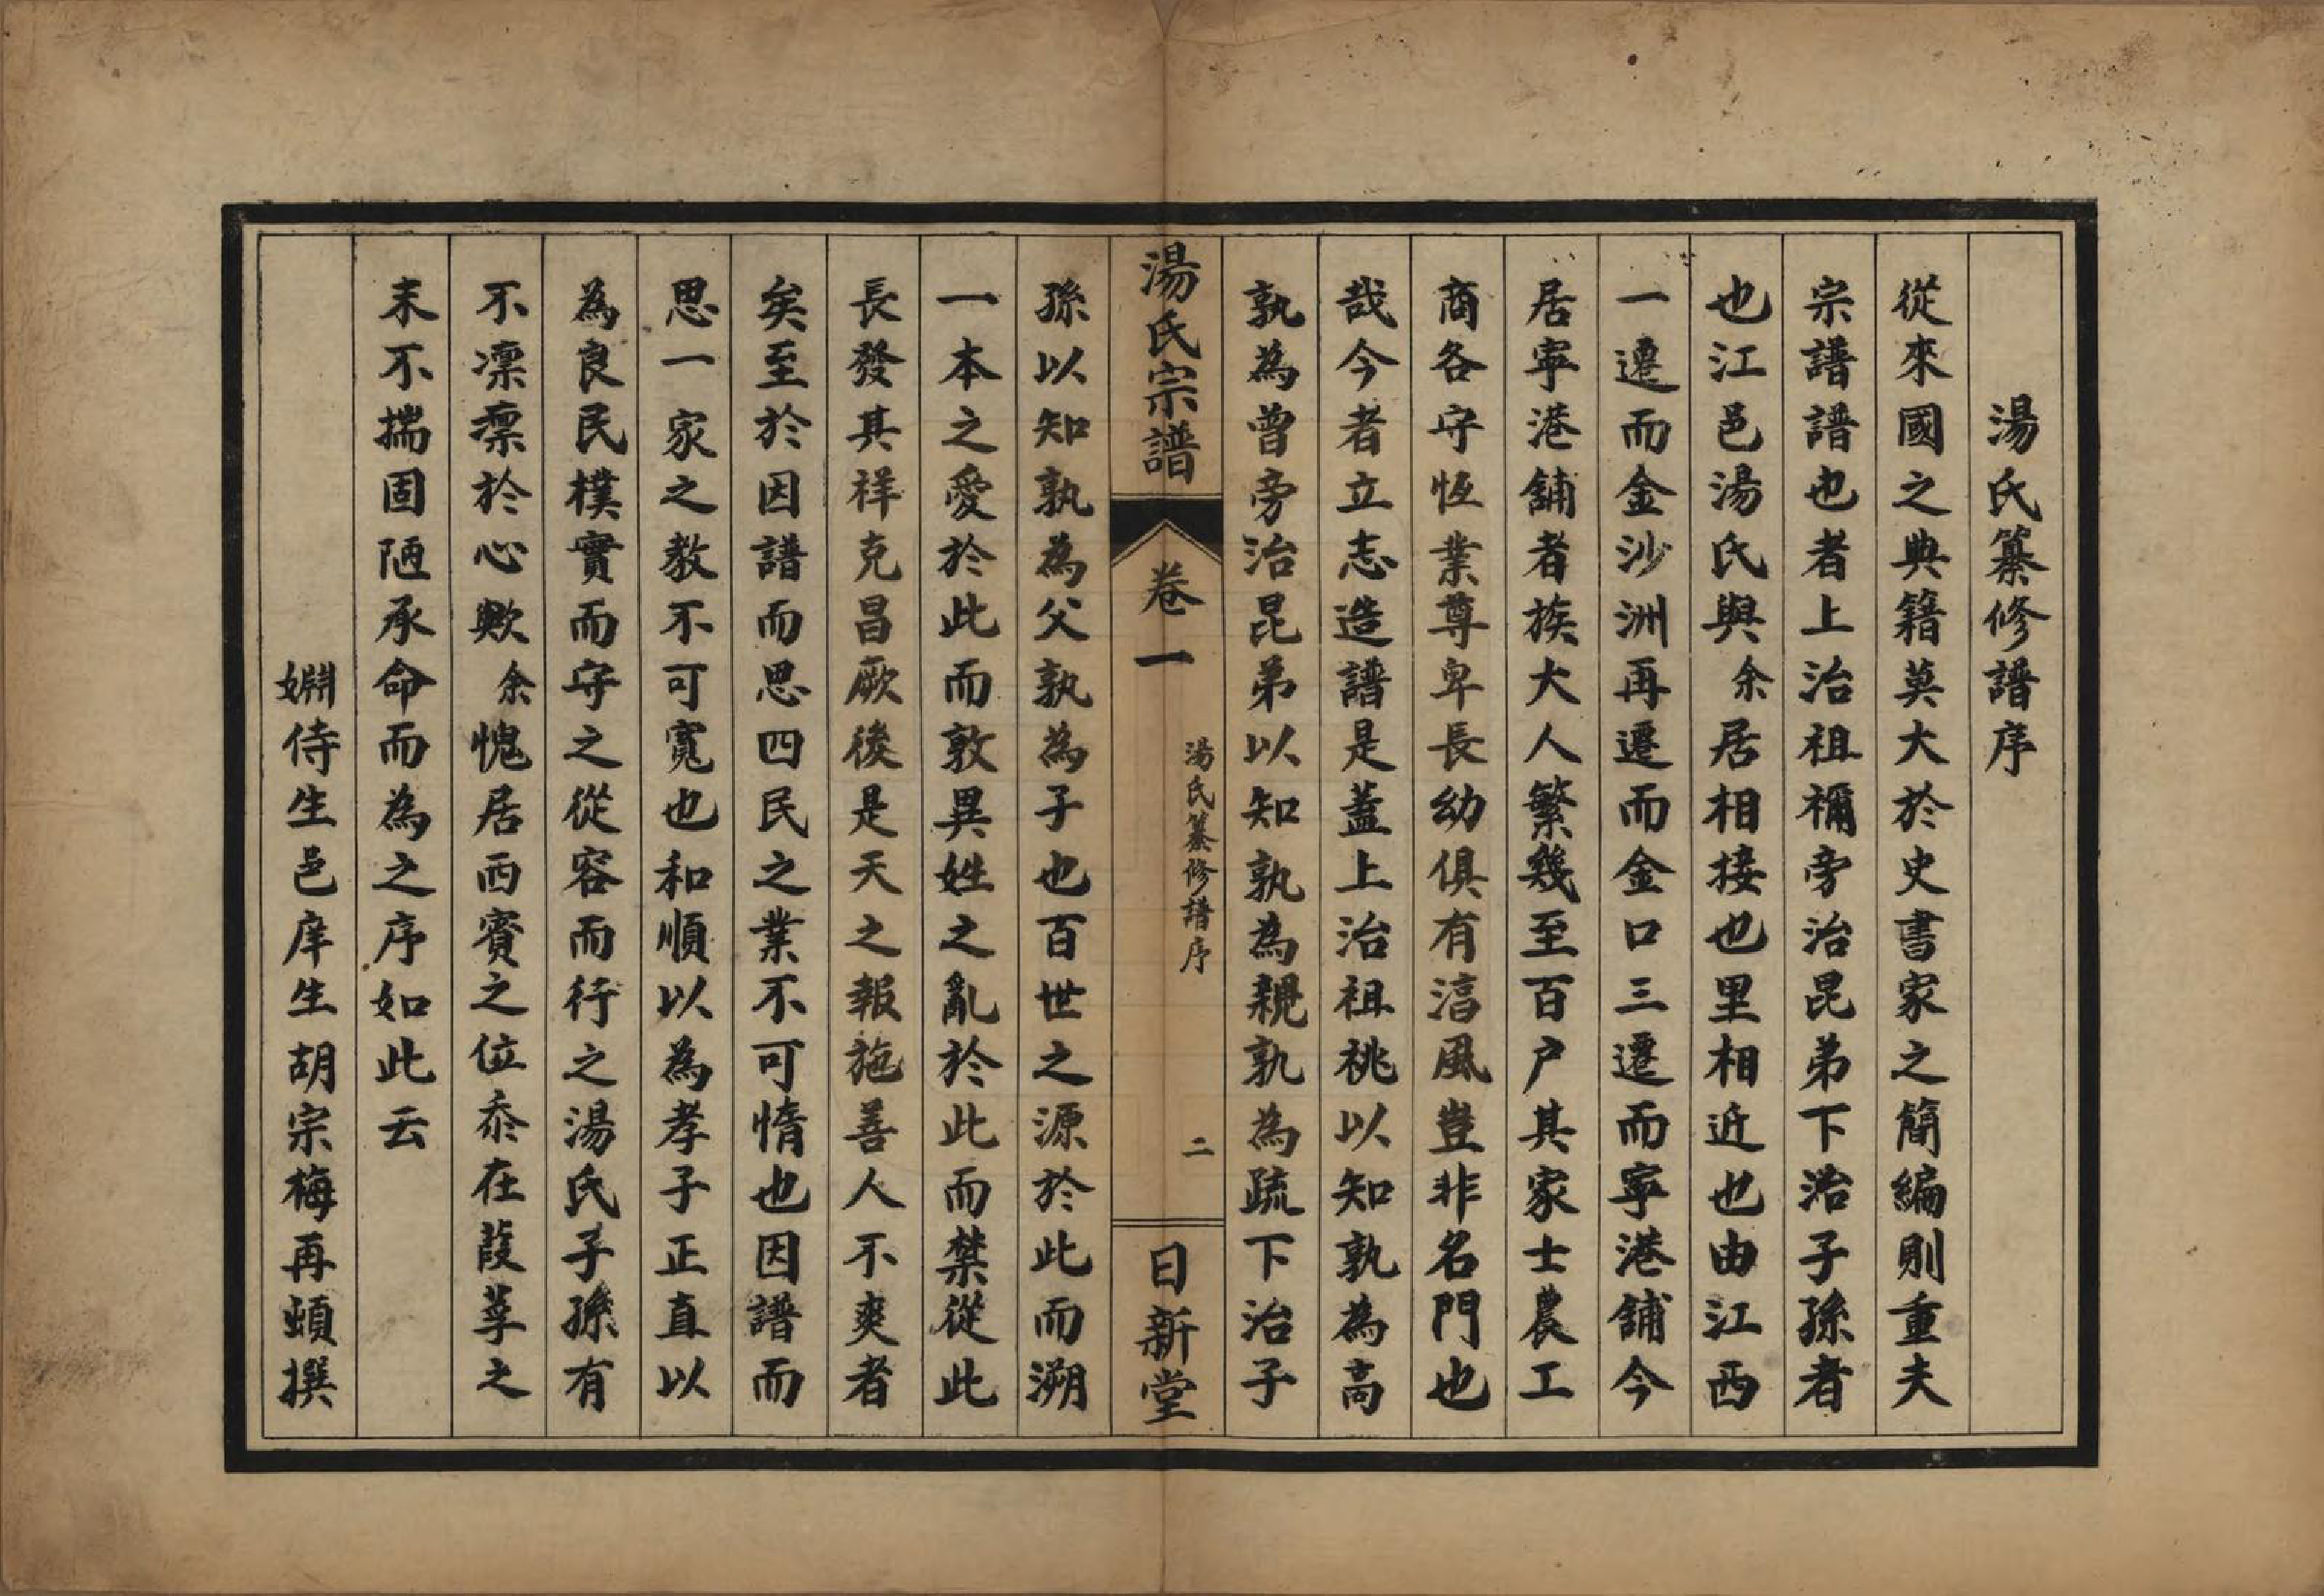 湯氏纂修譜序
從來國之典籍莫大於史書家之簡編則重夫
宗譜譜也者上治祖禰旁治昆弟下治子孫者
也江邑湯氏與余居相接也里相近也由江西
一遷而金沙洲再遷而金口三遷而寧港舖今
居寧港舖者族大人繁幾至百户其家士農工
商各守恆業尊卑長幼俱有湻風豈非名門也
哉今者立志造譜是蓋上治祖桃以知孰為高
孰為曾旁治昆弟以知孰為親孰為疏下治子
湯氏宗譜
卷一
湯氏纂修譜序
二
日新堂
孫以知孰為父孰為子也百世之源於此而溯
一本之愛於此而敦異姓之亂於此而禁從此
長發其祥克昌厥後是天之報施善人不爽者
矣至於因譜而思四民之業不可惰也因譜而
思一家之教不可寬也和順以為孝子正直以
為良民樸實而守之從容而行之湯氏子孫有
不凜凛於心歟余愧居西賓之位忝在葭莩之
末不揣固陋承命而為之序如此云
婣侍生邑庠生胡宗梅再頓撰